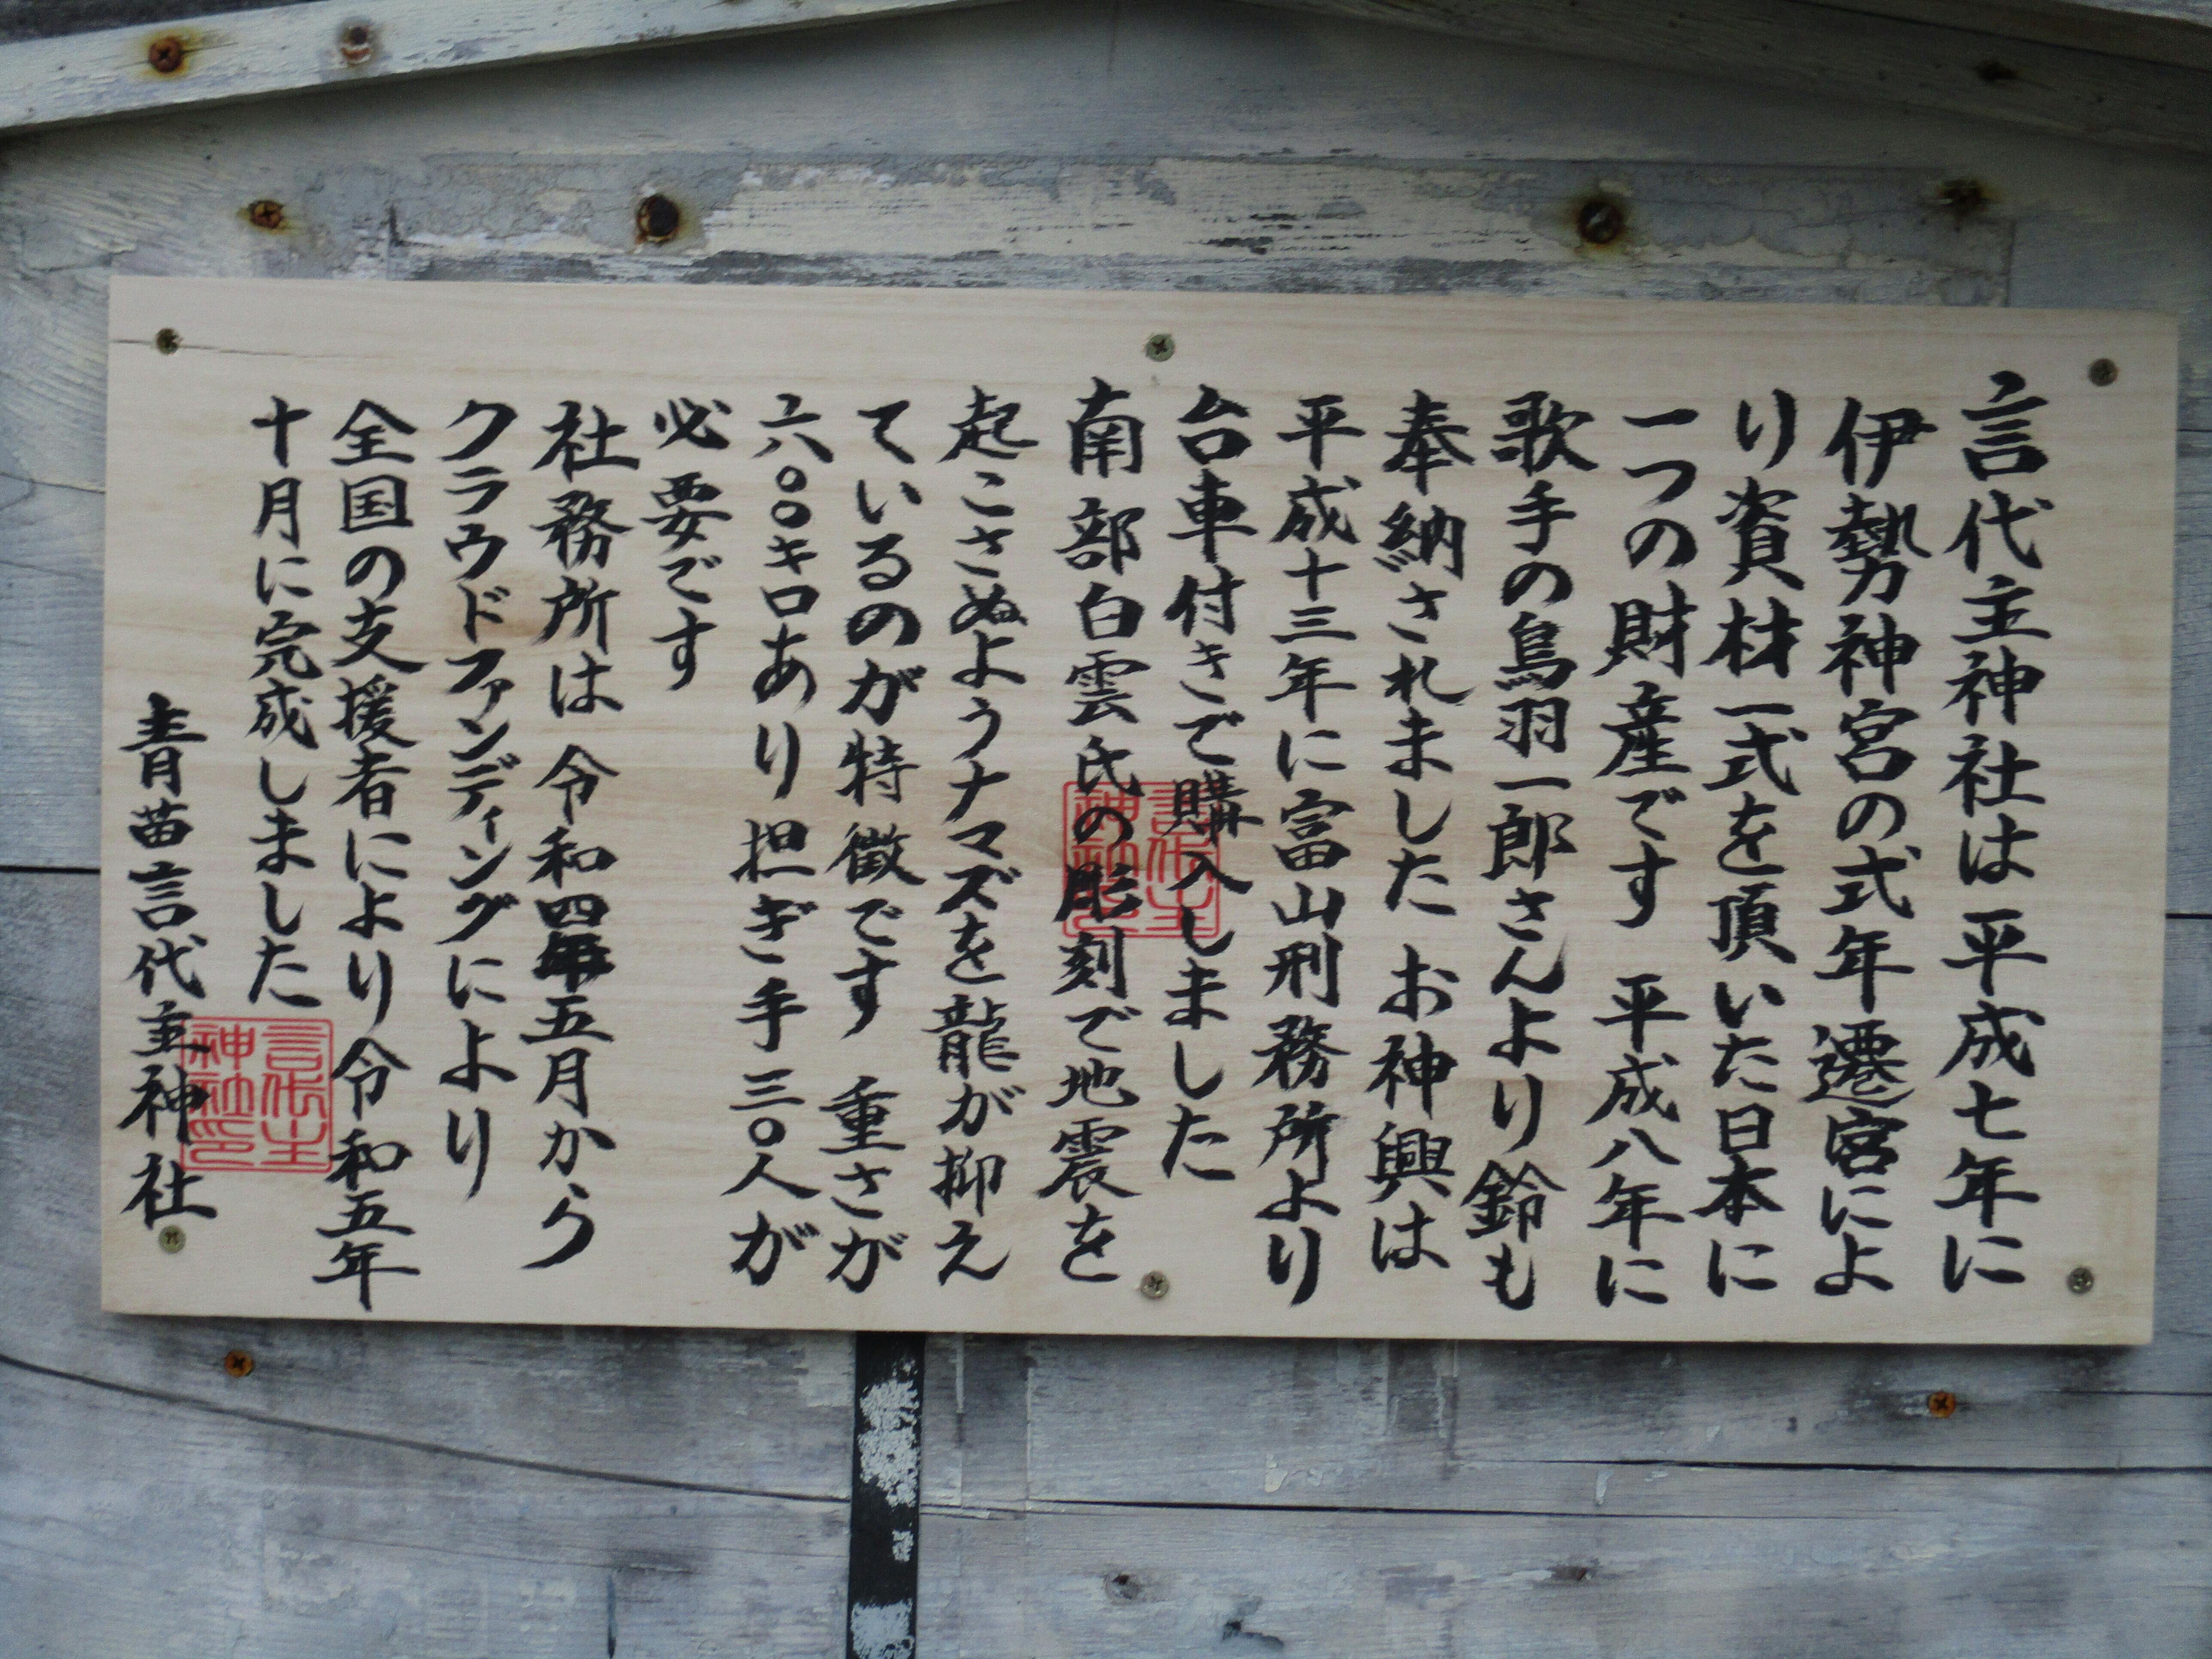 言代主神社は平成七年に
伊勢神宮の式年遷宮によ
り資材一式を頂いた日本に
一つの財産です 平成八年に
歌手の鳥羽一郎さんより鈴も
奉納されました お神興は
平成十三年に富山刑務所より
台車付きで購入しました
南部白雲氏の彫刻で地震を
起こさぬようナマズを龍が抑え
ているのが特徴です 重さが
六〇〇キロあり担ぎ手三〇人が
必要です
社務所は令和四年五月から
クラウドファンディングにより
全国の支援者により令和五年
十月に完成しました
青苗言代主神社
言代主
神社印
言代主
神社印